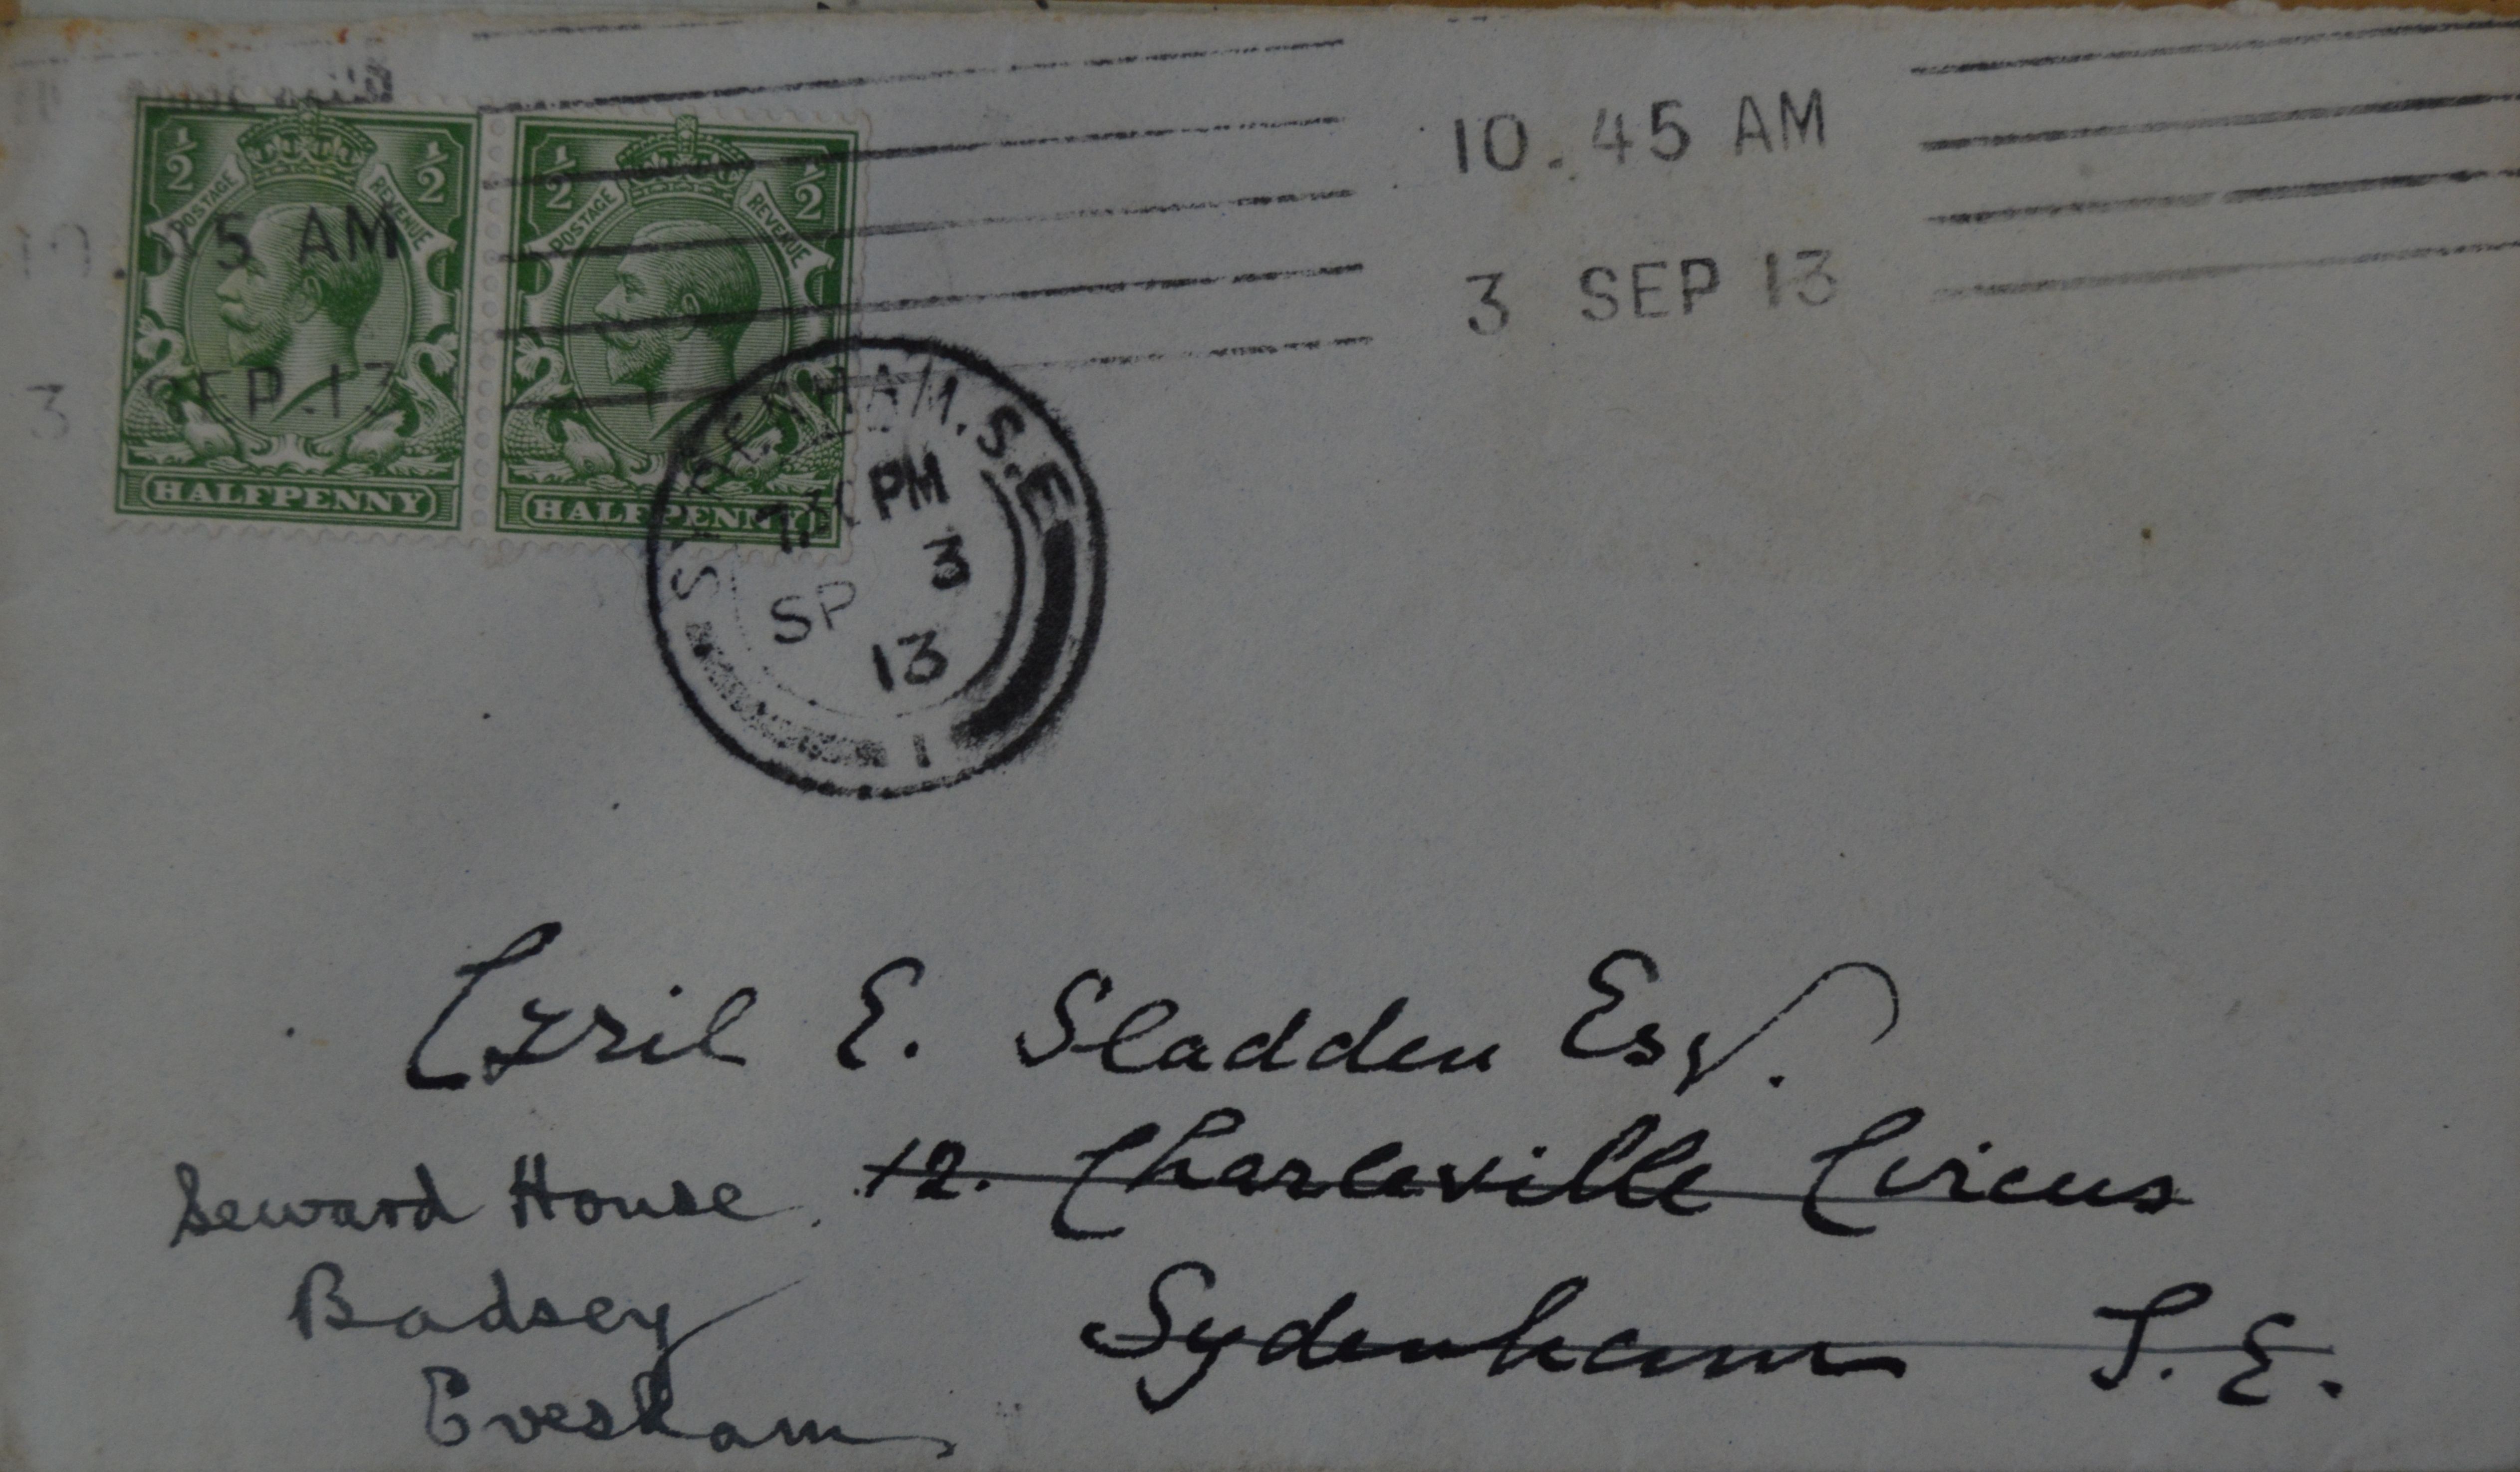 10. 45 AM
3 SEP 13
½ ½
POSTAGE REVENUE
HALFPENNY
½ ½
POSTAGE REVENUE
HALFPENNY
5 AM
3 SEP. 13
SYDENHAM. S.E
7.30 PM
SP 3
13
1
Cyril E. Sladden Esq.
12. Charleville Circus
Sydenham S.E.
Seward House.
Badsey
Evesham